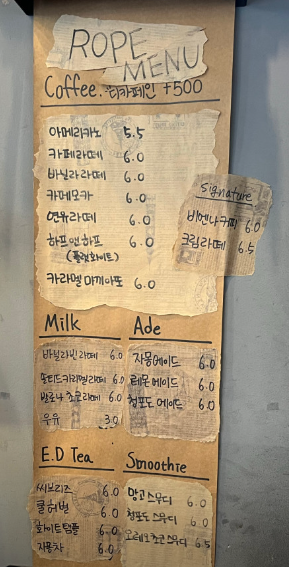 ROPE
MENU
Coffee. 디카페인 +500
아메리카노 5.5
카페라떼 6.0
바닐라라떼 6.0
카페모카 6.0
연유라떼 6.0
하프앤하프 6.0
(플랫화이트)
카라멜마끼아또 6.0
Signature
비엔나커피 6.0
크림라떼 6.5
Milk
바닐라빈라떼 6.0
솔티드카라멜라떼 6.0
발로나초코라떼 6.0
우유 3.0
Ade
자몽에이드 6.0
레몬에이드 6.0
청포도에이드 6.0
E.D Tea
씨브리즈 6.0
쿨허벌 6.0
화이트템플 6.0
자몽차 6.0
Smoothie
망고스무디 6.0
청포도스무디 6.0
오레오초코스무디 6.5